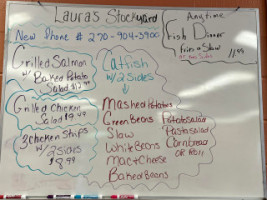 Laura's Stockyard
New Phone # 270-904-3900
Anytime
Fish Dinner
Fries + Slaw
11.99
Grilled Salmon
w/ Baked Potato
Salad
Catfish
w/ 2 Sides
Grilled Chicken
Salad $9.49
3 Chicken Strips
w/ 2 Sides
$8.99
Mashed Potatoes
Green Beans
Slaw
White Beans
Mac + Cheese
Baked Beans
Potato Salad
Pasta Salad
Cornbread
or Roll